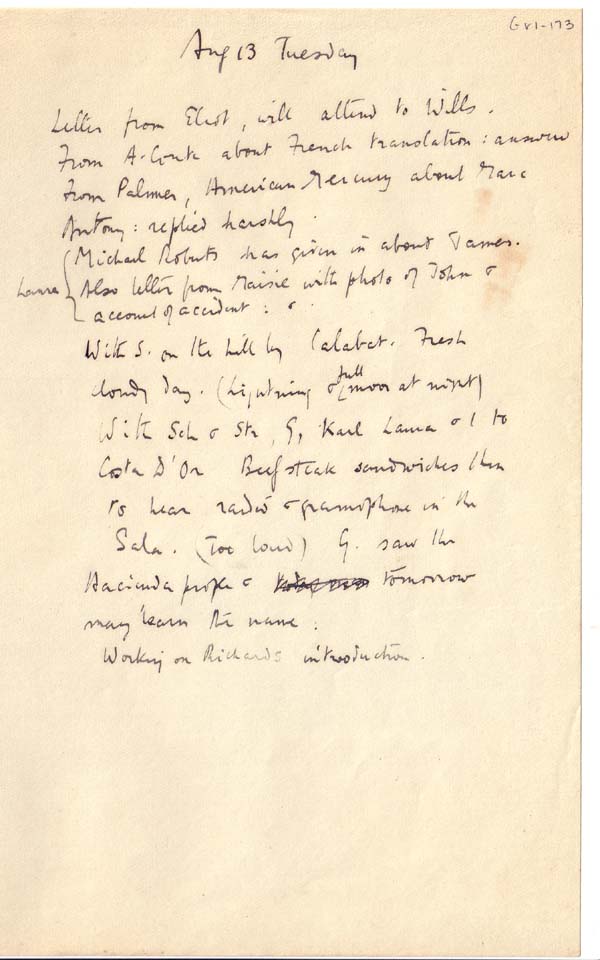 GVI-173
Aug 13 Tuesday
Letter from Eliot, will attend to Wills.
From A. about French translation: answered
From Palmer, American Mercury about Marc
Antony: replied harshly.
Michael Roberts has given in about James.
Laura Also letter from Maisie with photo of John &
account of accident: &.
With S. on the hill by Calabat. Fresh
cloudy day. (Lightning & full moon at night)
With Sch & Str, G, Karl Laura & I to
Costa D'Or Beefsteak sandwiches then
to hear radio & gramophone in the
Sala. (Too loud) G. saw the
Hacienda people & tomorrow
may learn the name.
Working on Richards introduction.